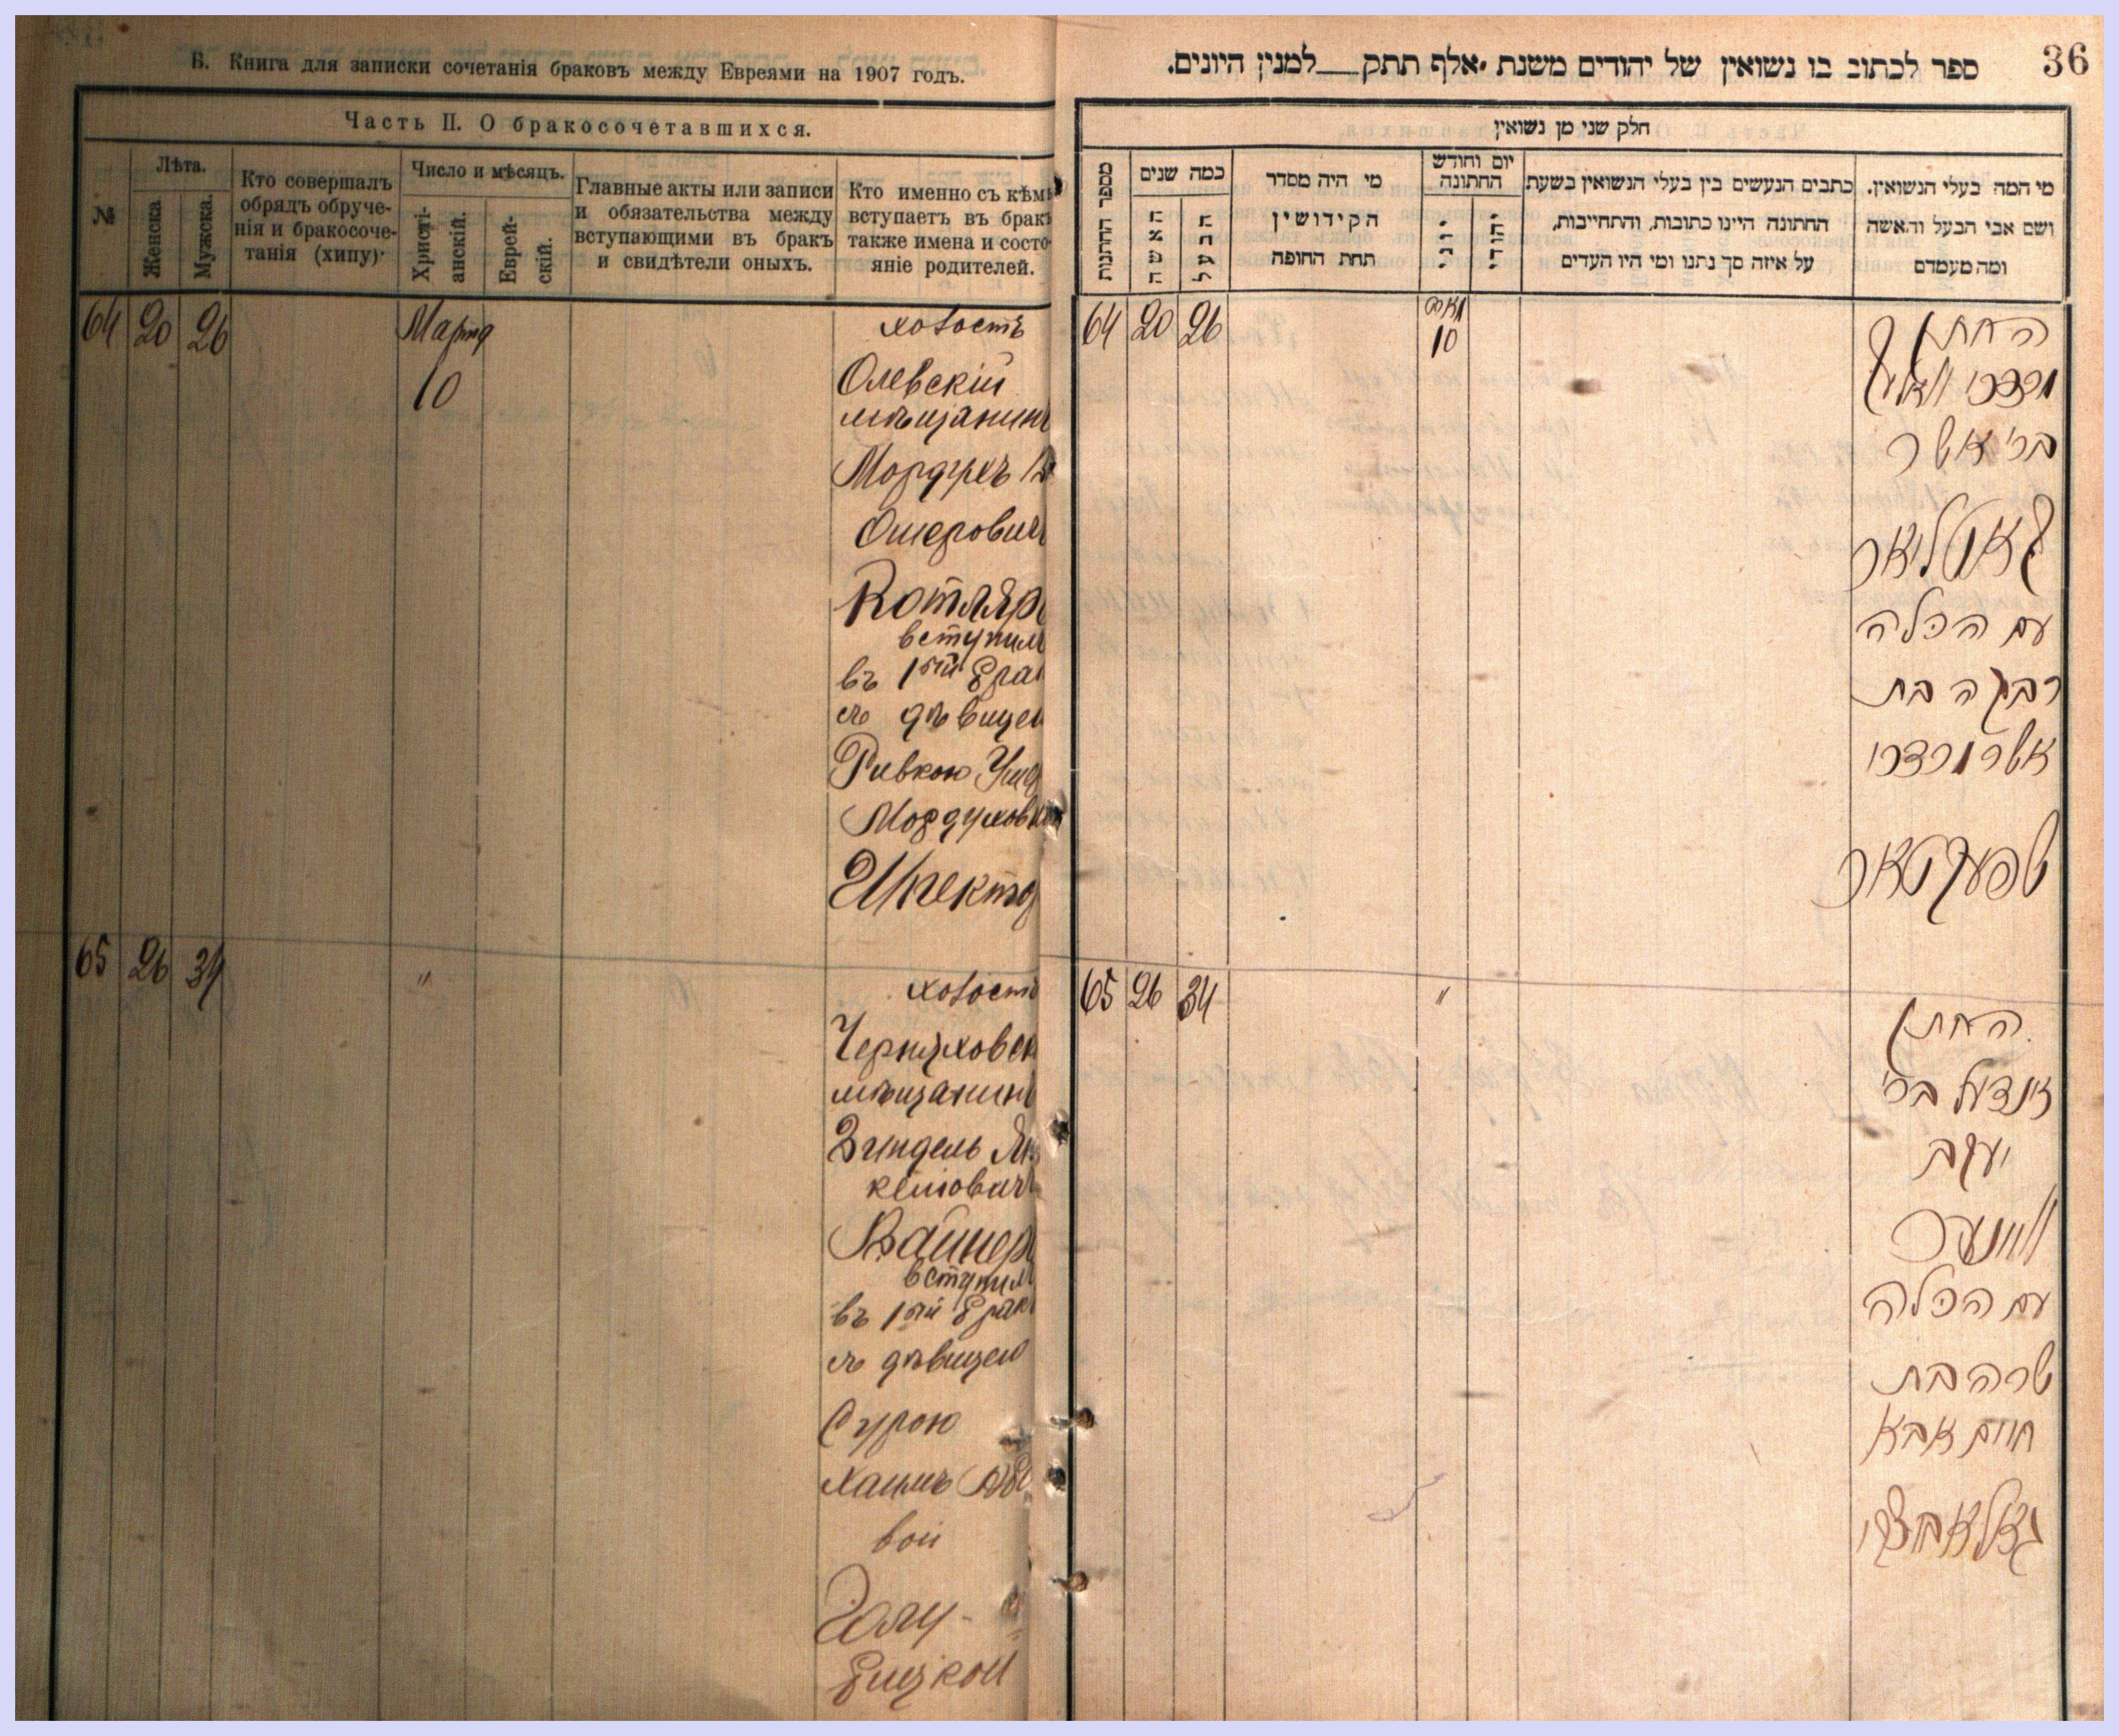 В. Книга для записки сочетанія браковъ между Евреями на 1907 годъ.
Часть II. О бракосочетавшихся.
№
Лѣта.
Женска
Мужска.
Кто совершалъ
обрядъ обруче-
нія и бракосоче-
танія (хипу)
Число и мѣсяцъ.
Христі-
анскій.
Еврей-
скій.
Главные акты или записи
и обязательства между
вступающими въ бракъ
и свидѣтели оныхъ.
Кто именно съ кѣмъ
вступаетъ въ бракъ
также имена и состо-
яніе родителей.
64 20 26
Марта
10
холостъ
Олевскій
мѣщанинъ
Мордухъ
Ошеровичъ
Котляръ
вступилъ
въ 1ый бра
съ дѣвицею
Ривкою
Мордуховною
65 26 34 "
холостъ
Черняховск
мѣщанинъ
Зиндель Ян
келіовичъ
Вайнер
вступил
въ 1ый брак
съ дѣвицею
Сурою
Хаимъ Аб
вой
Голу-
бицкой
36
ספר לכתוב בו נשואין של יהודים משנת אלף תתק__למנין היונים.
חלק שני מן נשואין
מספר החתנות
כמה שנים
האשה
הבעל
מי היה מסדר
הקידושין
תחת החופה
יום וחודש
החתונה
יוני
יהודי
כתבים הנעשים בין בעלי הנשואין בשעת
החתונה היינו כתובות, והתחייבות,
על איזה סך נתנו ומי היו העדים
מי המה בעלי הנשואין.
ושם אבי הבעל והאשה
ומה מעמדם
64 20 26
מארט
10
החתן
מרדכי
בר' אשר
קאטליאר
עם הכלה
רבקה בת
אשר מרדכי
שפעקטאר
65 26 34 "
החתן
זינדעל בר'
יעקב
ווינער
עם הכלה
שרה בת
חיים אבא